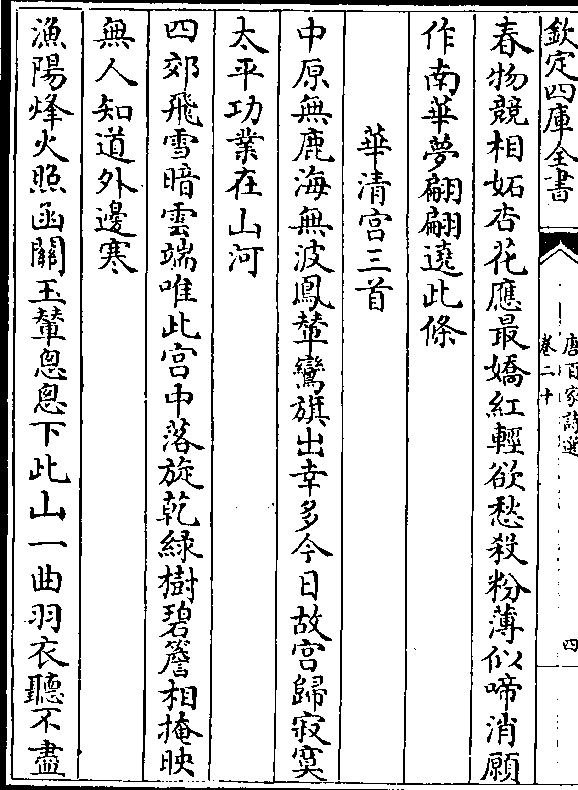 欽定四庫全書
唐百家詩選
卷二十
四
春物競相妬杏花應最嬌紅輕欲愁殺粉薄似啼消願
作南華夢翩翩遶此條
華清宮三首
中原無鹿海無波鳳輦鸞旗出幸多今日故宮歸寂寞
太平功業在山河
四郊飛雪暗雲端唯此宮中落旋乾綠樹碧簷相掩映
無人知道外邊寒
漁陽烽火照函關玉輦怱怱下此山一曲羽衣聽不盡